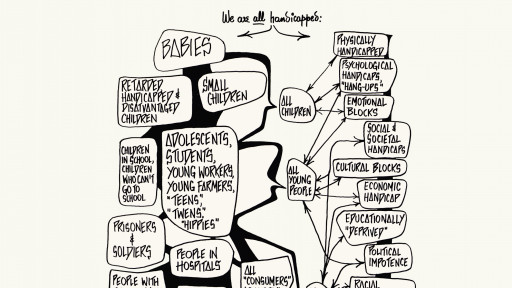 We are all handicapped:
BABIES
RETARDED,
HANDICAPPED &
DISADVANTAGED
CHILDREN
SMALL
CHILDREN
CHILDREN
IN SCHOOL,
CHILDREN
WHO CAN'T
GO TO
SCHOOL
ADOLESCENTS,
STUDENTS,
YOUNG WORKERS,
YOUNG FARMERS,
"TEENS",
"TWENS,"
"HIPPIES"
PRISONERS
&
SOLDIERS
PEOPLE IN
HOSPITALS
PEOPLE WITH
ALL
"CONSUMERS"
ALL
CHILDREN
ALL
YOUNG
PEOPLE
PHYSICALLY
HANDICAPPED
PSYCHOLOGICAL
HANDICAPS,
"HANG-UPS"
EMOTIONAL
BLOCKS
SOCIAL &
SOCIETAL
HANDICAPS
CULTURAL BLOCKS
ECONOMIC
HANDICAP
EDUCATIONALLY
"DEPRIVED"
POLITICAL
IMPOTENCE
RACIAL